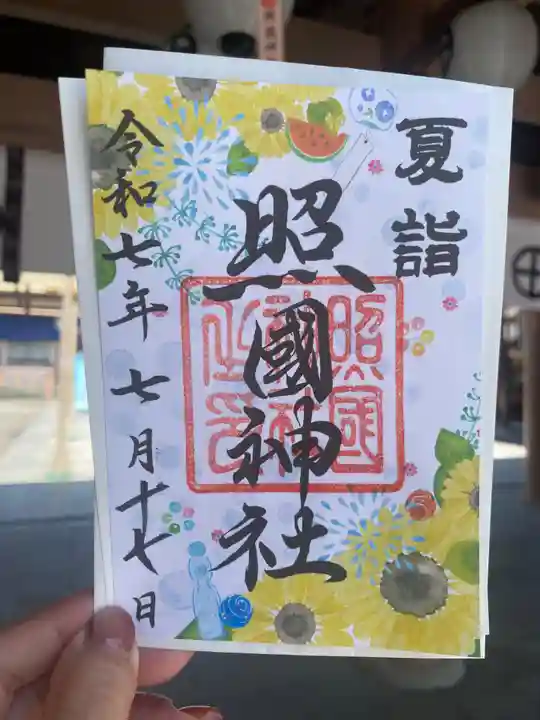 夏詣
照國神社
照國神社之印
令和七年七月十七日